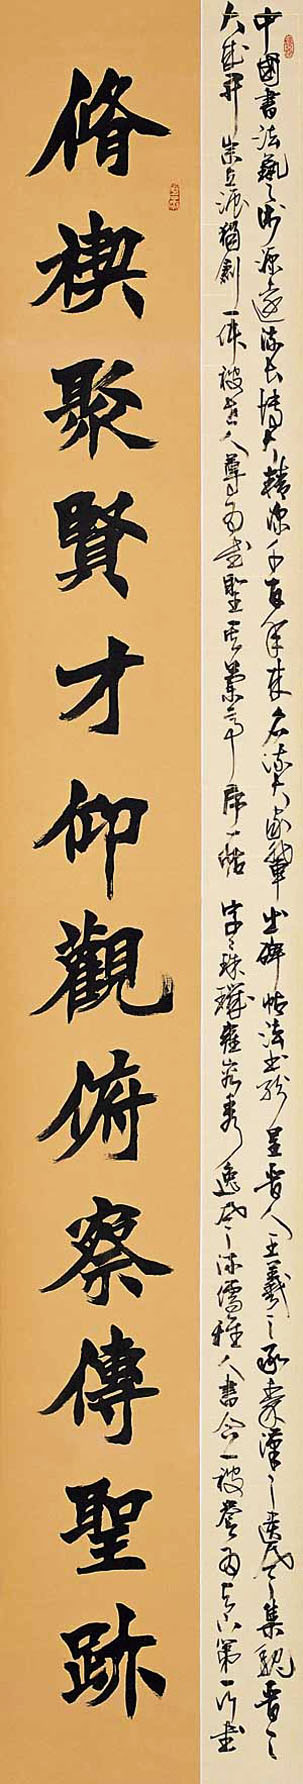 中國書法藝術源遠流長博大精深千百年來名流大家輩出碑帖法書紛呈晉人王羲之承秦漢之遺風集魏晉之
大成開宗立派獨創一体被世人尊為書聖其蘭亭序一帖字字珠璣雍容秀逸風流儒雅人書合一被譽為天下第一行書
脩禊聚賢才仰觀俯察傳聖跡